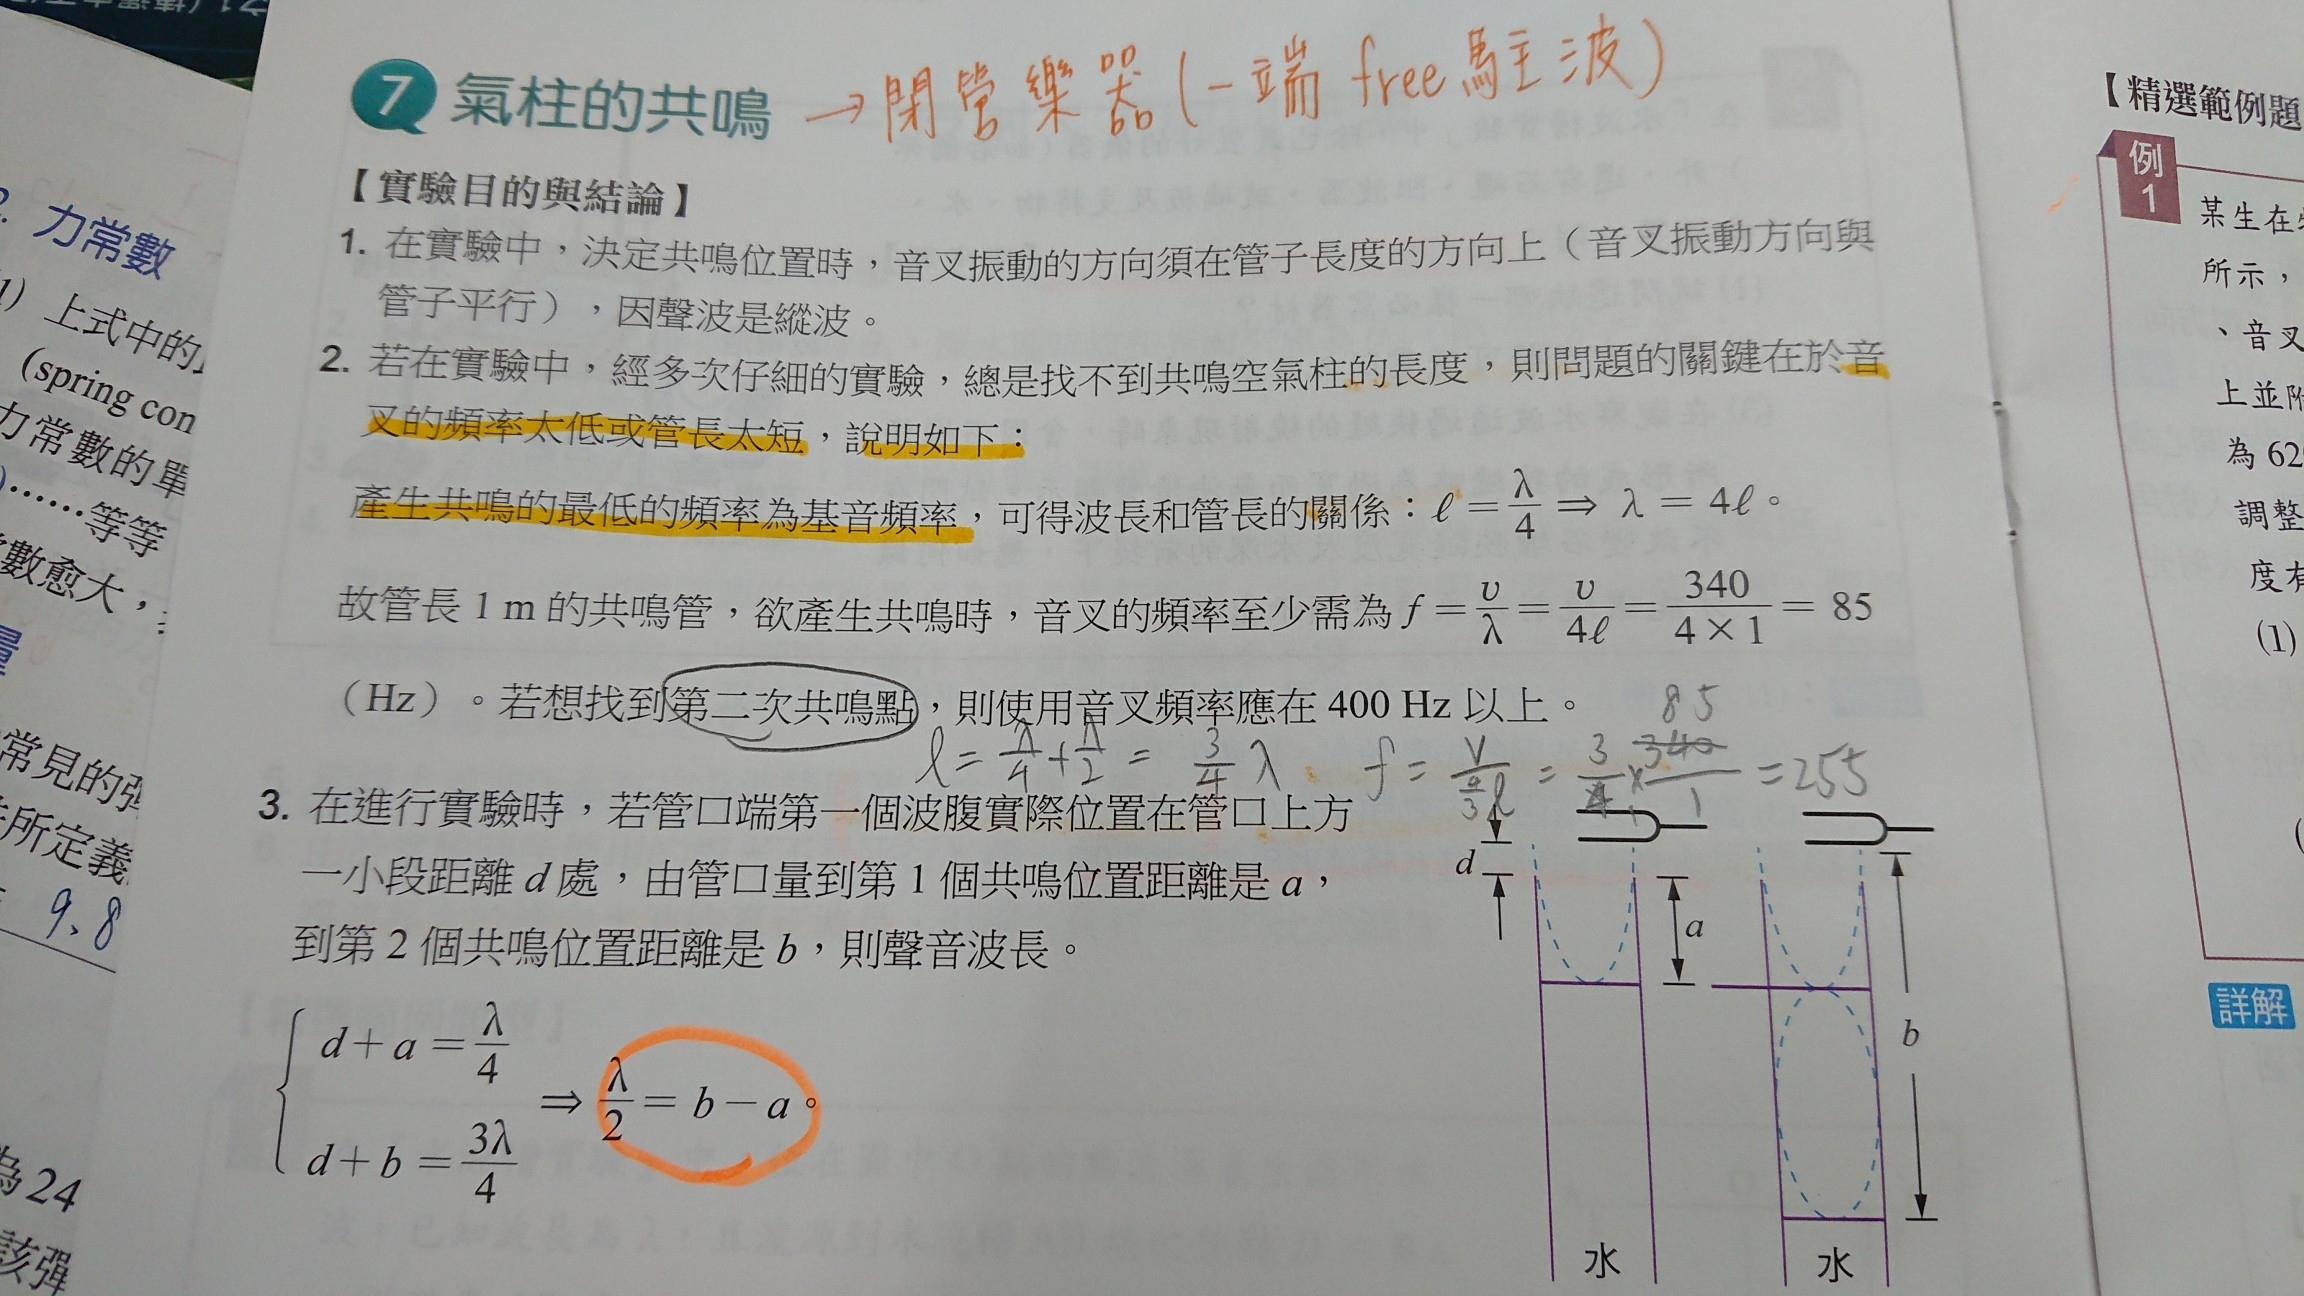 力常數
上式中的
(spring con
力常數的單
)……等等
數愈大,
量
常見的彈
所定義
9.8
為 24
該彈
7 氣柱的共鳴 → 閉管樂器 (一端 free 駐波)
【實驗目的與結論】
1. 在實驗中,決定共鳴位置時,音叉振動的方向須在管子長度的方向上(音叉振動方向與
管子平行),因聲波是縱波。
2. 若在實驗中,經多次仔細的實驗,總是找不到共鳴空氣柱的長度,則問題的關鍵在於音
叉的頻率太低或管長太短,說明如下:
產生共鳴的最低的頻率為基音頻率,可得波長和管長的關係:ℓ = λ/4 ⇒ λ = 4ℓ。
故管長 1 m 的共鳴管,欲產生共鳴時,音叉的頻率至少需為 f = υ/λ = υ/4ℓ = 340/4 × 1 = 85
(Hz)。若想找到第二次共鳴點,則使用音叉頻率應在 400 Hz 以上。
85
ℓ = λ/4 + λ/2 = 3/4 λ f = V/(4/3 ℓ) = 3/4 × 340/1 = 255
3. 在進行實驗時,若管口端第一個波腹實際位置在管口上方
一小段距離 d 處,由管口量到第 1 個共鳴位置距離是 a,
到第 2 個共鳴位置距離是 b,則聲音波長。
d + a = λ/4
d + b = 3λ/4
⇒ λ/2 = b − a。
d
a
b
水
水
【精選範例題
例
1
某生在
所示,
、音叉
上並附
為 62
調整
度有
(1)
(
詳解